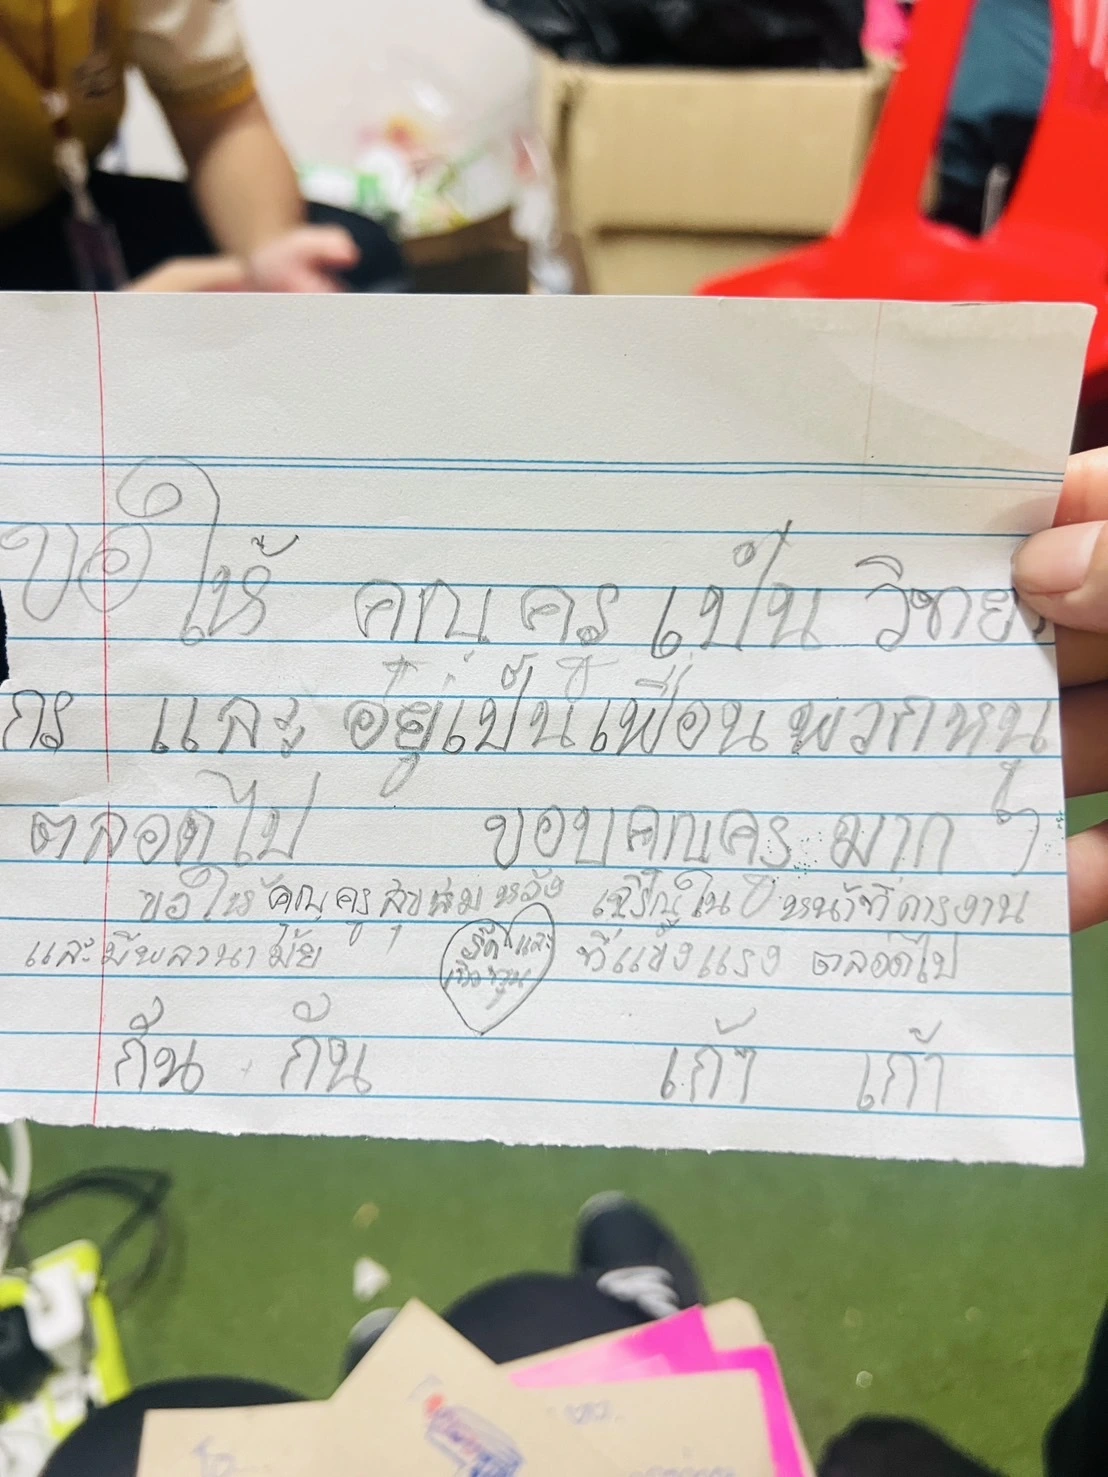 ขอให้ คุณครู เป็น วิทยา
กร และ อยู่เป็นเพื่อนพวกหนู
ตลอดไป ขอบคุณครู มาก ๆ
ขอให้คุณครูสุขสมหวัง เจริญในปีหน้าที่การงาน
และมีพลานามัย ที่แข็งแรง ตลอดไป
รัก และ
กั้น กัน เก้า เก้า